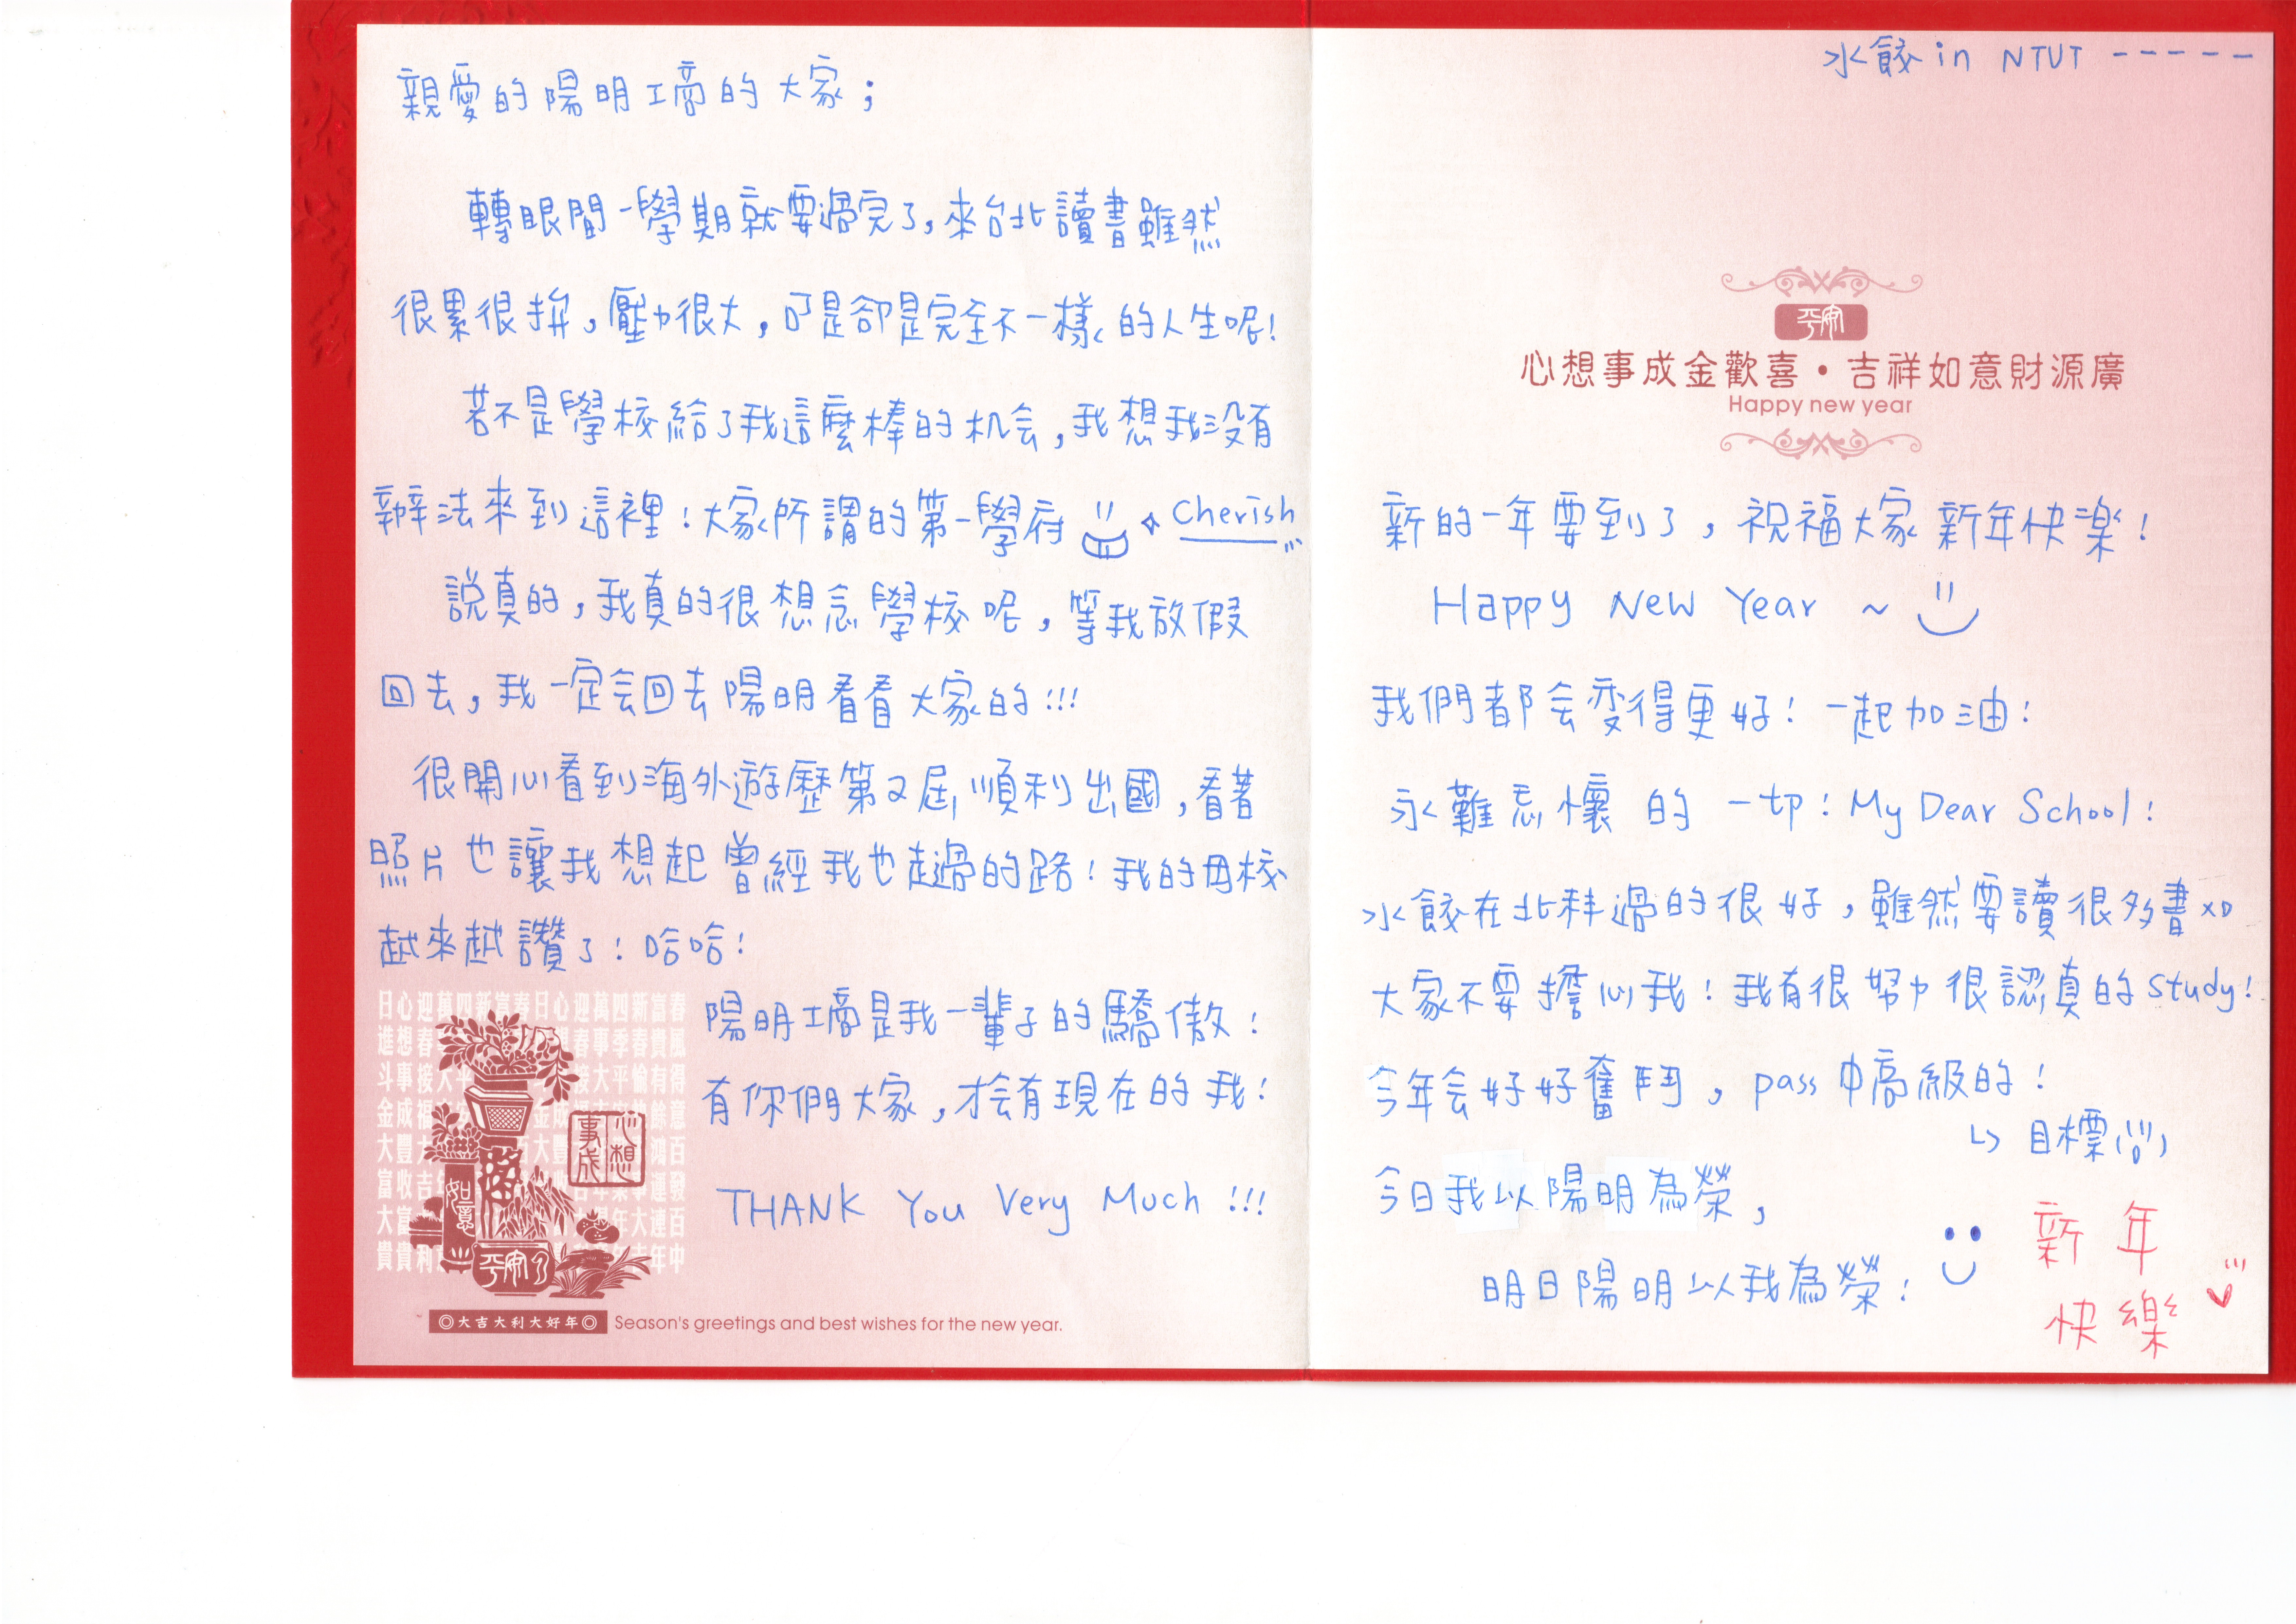 親愛的陽明工商的大家；
轉眼間一學期就要過完了，來台北讀書雖然
很累很拚，壓力很大，可是卻是完全不一樣的人生呢！
若不是學校給了我這麼棒的机会，我想我没有
辦法來到這裡！大家所謂的第一學府 Cherish
説真的，我真的很想念學校呢，等我放假
回去，我一定会回去陽明看看大家的!!!
很開心看到海外遊歷第2屆順利出國，看著
照片也讓我想起曾經我也走過的路！我的母校
越來越讚了！哈哈！
陽明工商是我一輩子的驕傲！
有你們大家，才会有現在的我！
THANK You Very Much !!!
心想事成
如意
平安
◎大吉大利大好年◎
Season's greetings and best wishes for the new year.
水餃 in NTUT -----
平安
心想事成金歡喜・吉祥如意財源廣
Happy new year
新的一年要到了，祝福大家新年快樂！
Happy New Year ~
我們都会变得更好！一起加油！
永難忘懷的一切！My Dear School！
水餃在北科過的很好，雖然要讀很多書XD
大家不要擔心我！我有很努力很認真的study！
今年会好好奮鬥，pass中高級的！
↳目標
今日我以陽明為榮，
明日陽明以我為榮！
新年
快樂